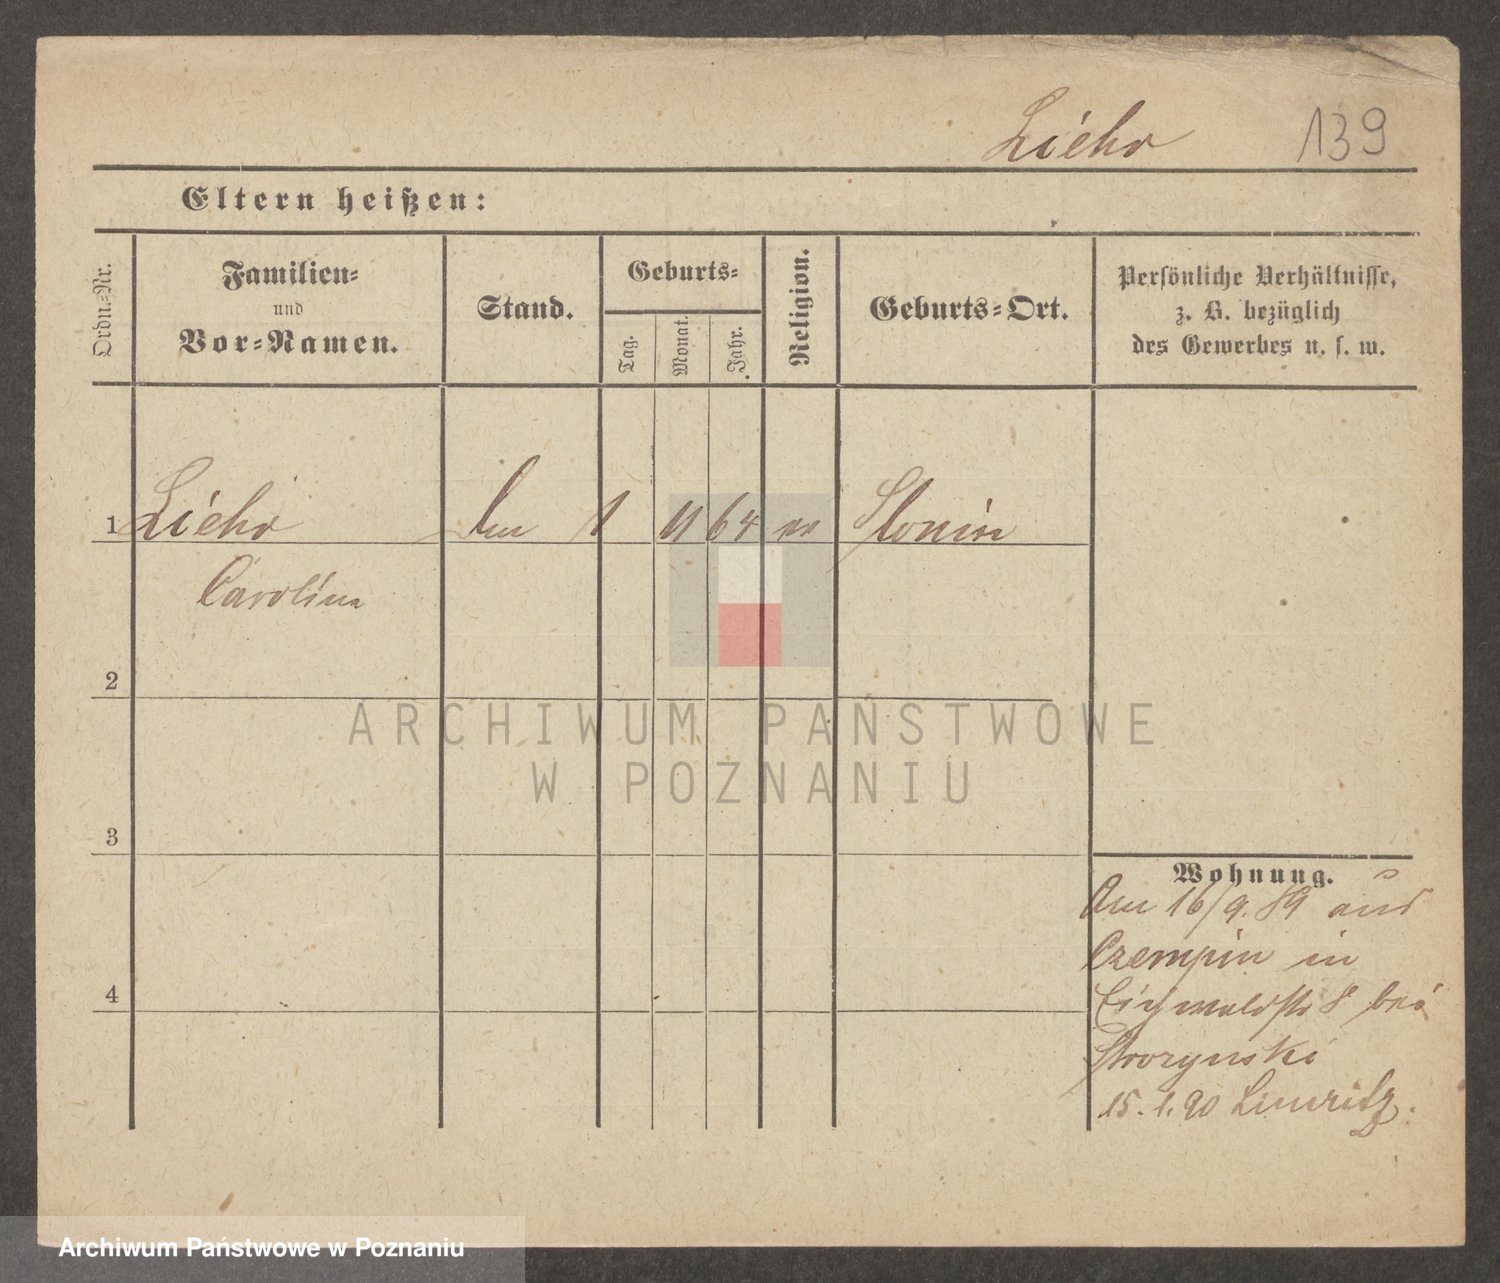 Liehr 139
Eltern heißen:
Ordn.-Nr.
Familien-
und
Vor-Namen.
Stand.
Geburts-
Tag.
Monat.
Jahr.
Religion.
Geburts-Ort.
Persönliche Verhältnisse,
z. B. bezüglich
des Gewerbes u. s. w.
1 Liehr 1 11 64 Slonin
Carolina
2
3
4
Wohnung.
Am 16/9. 89 aus
Czempin in
Eichwaldstr 8 bei
15. 1. 90
ARCHIWUM PAŃSTWOWE
W POZNANIU
Archiwum Państwowe w Poznaniu